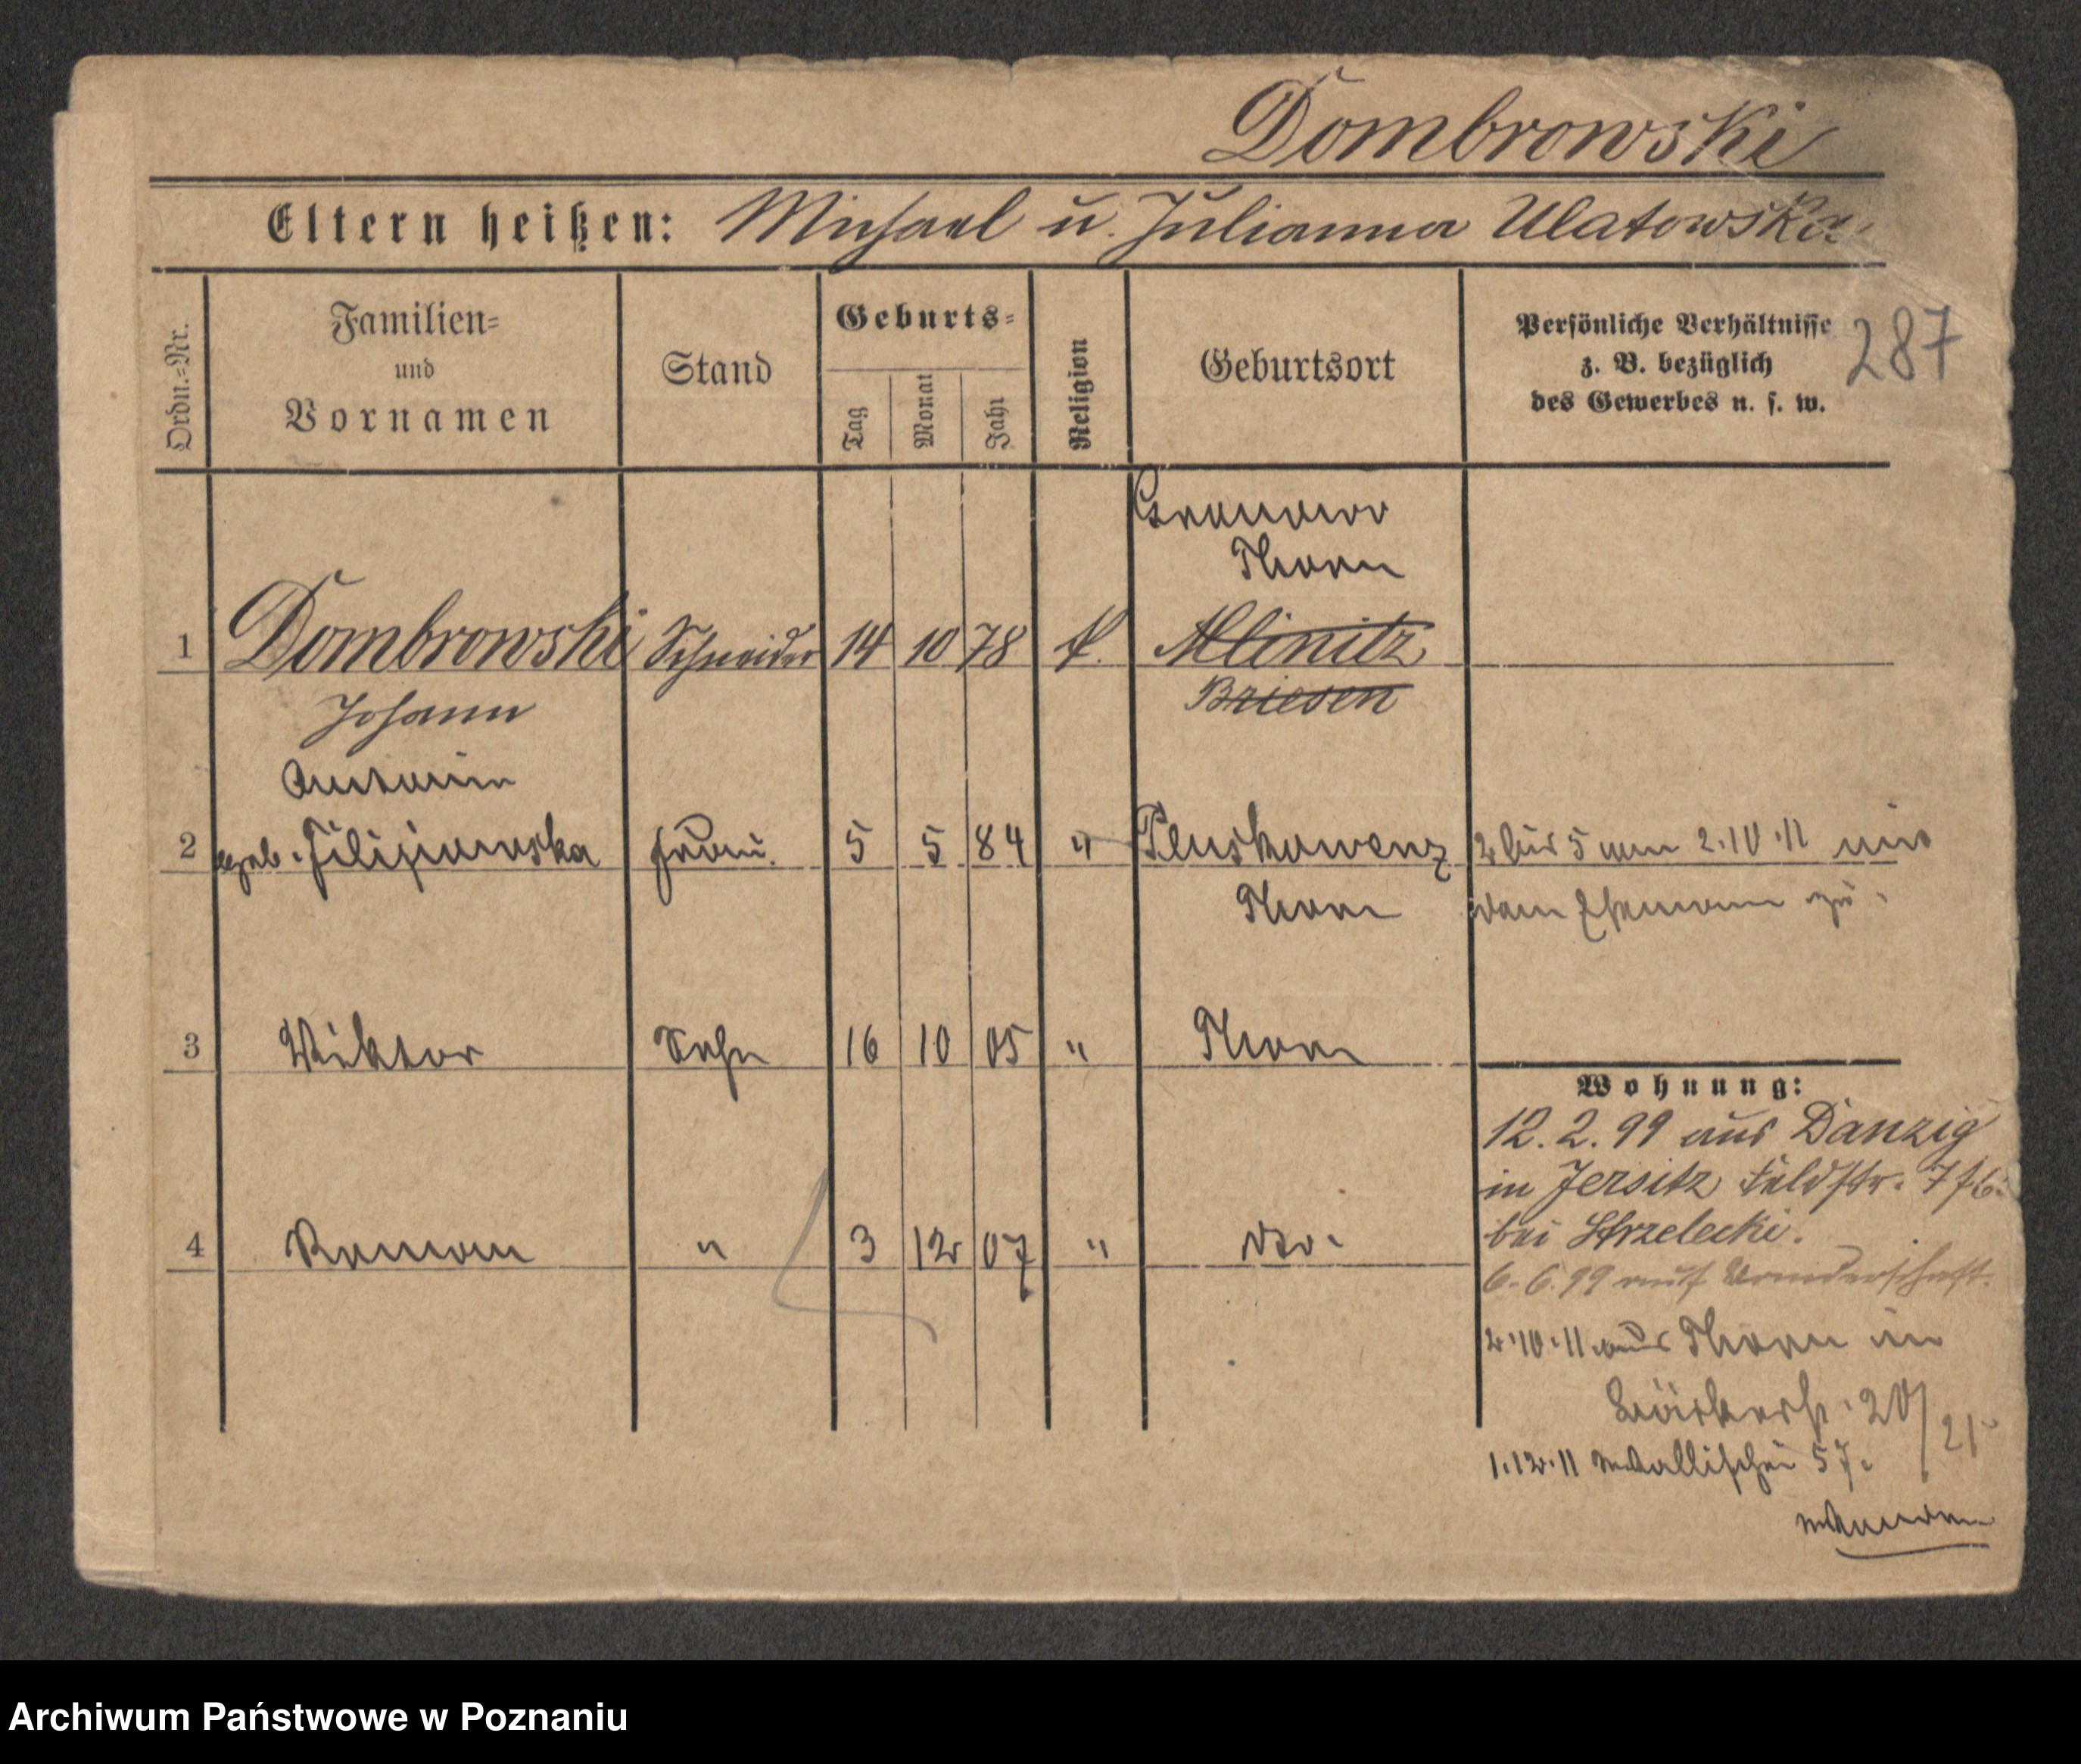 Dombrowski
Eltern heißen: Michael u. Julianna Ulatowska
Ordn.-Nr.
Familien-
und
Vornamen
Stand
Geburts-
Tag
Monat
Jahr
Religion
Geburtsort
Persönliche Verhältnisse
z. B. bezüglich
des Gewerbes u. s. w.
287
Thorn
1 Dombrowski Schneider 14 10 78 k. Mlinitz
Johann Briesen
2 geb. Filipiowska Frau 5 5 84 " Pluskowenz 2 bis 5 am 2.10.11 mit
Thorn dem Ehemann zu.
3 Viktor Sohn 16 10 05 " Thorn
Wohnung:
12. 2. 99 aus Danzig
in Jersitz Feldstr. 7
bei Strzelecki.
4 Roman " 3 12 07 " dto.
6. 6. 99 auf Wanderschaft.
2.10.11 aus Thorn in
20/21
1.12.11 Wallischei 57.